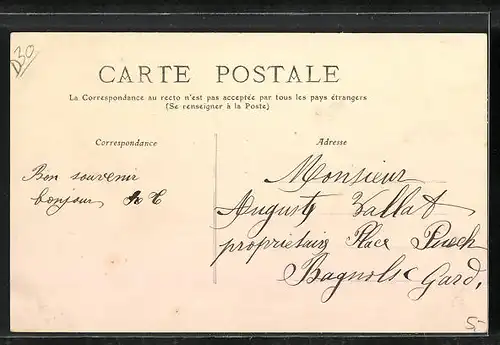 D30
CARTE POSTALE
La Correspondance au recto n'est pas acceptée par tous les pays étrangers
(Se renseigner à la Poste)
Correspondance
Adresse
Bon souvenir
bonjour
Monsieur
Auguste Vallat
propriétaire Place Puech
Bagnols Gard,
5-